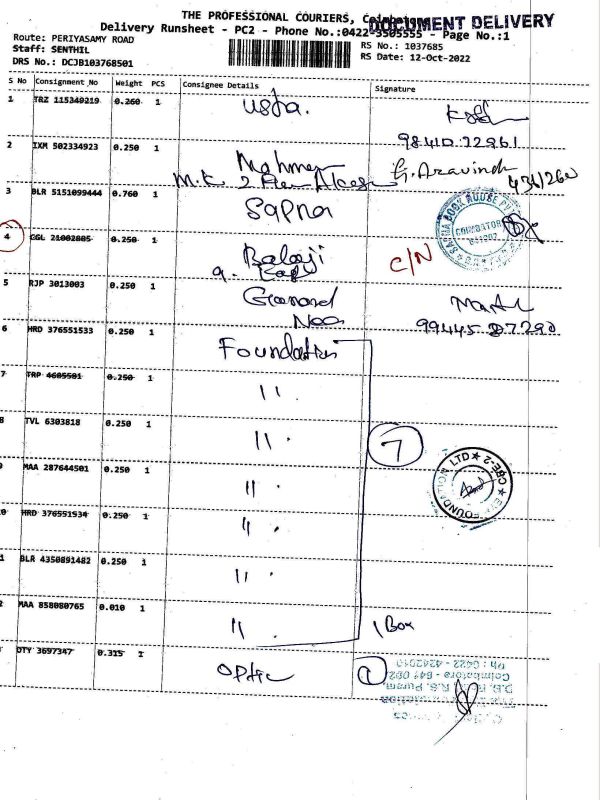 THE PROFESSIONAL COURIERS, Coimbatore
DOCUMENT DELIVERY
Delivery Runsheet - PC2 - Phone No.:0422-3505555 - Page No.:1
Route: PERIYASAMY ROAD
RS No.: 1037685
Staff: SENTHIL
RS Date: 12-Oct-2022
DRS No.: DCJB103768501
S No Consignment_No Weight PCS Consignee Details Signature
1 TRZ 115349219 0.260 1 usha.
98410 72961
2 IXM 502334923 0.250 1
M.K G. Aravindh
3 BLR 5151099444 0.760 1 Sapna
SAPNA BOOK HOUSE PVT
COIMBATORE
641002
4 GGL 21002805 0.250 1 Balaji C/N
5 RJP 3013003 0.250 1
99445 27290
6 HRD 376551533 0.250 1 Foundation
7 TRP 4605501 0.250 1 11.
8 TVL 6303818 0.250 1 11. 7
9 MAA 287644501 0.250 1 11.
LTD ★ CBE-2 ★
10 HRD 376551534 0.250 1 11.
11 BLR 4350891482 0.250 1 11.
12 MAA 858080765 0.010 1 11. 1 Box
OTY 3697347 0.315 1 Optic 1
Ph : 0422 - 4242010
Coimbatore - 641 002
D.B. Road, R.S. Puram